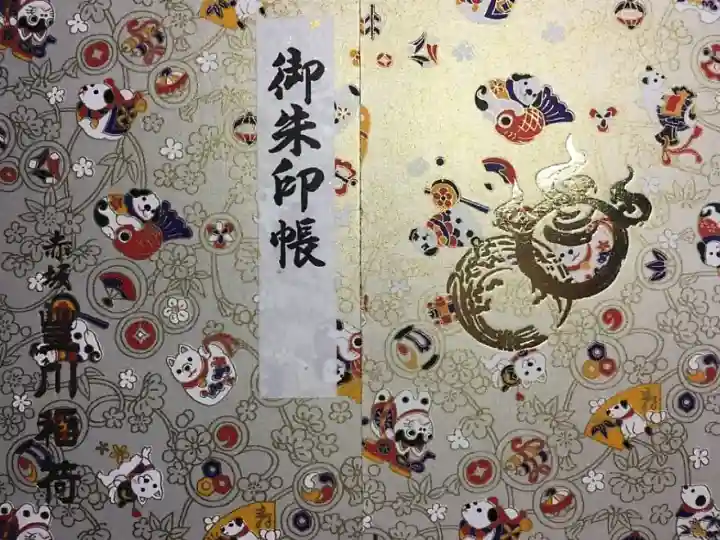 御朱印帳
赤坂
豊川稲荷
寿
寿